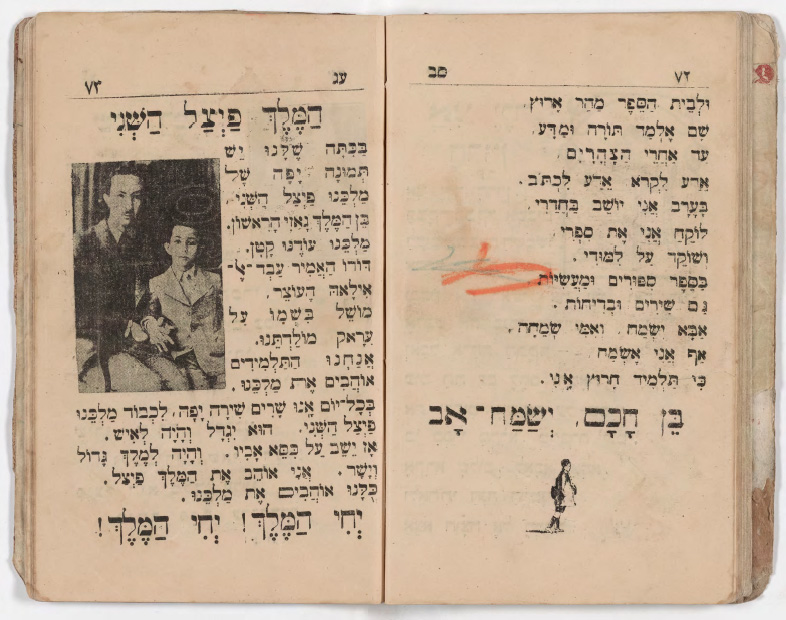 ٧٢ סב
וּלְבֵית הַסֵּפֶר מַהֵר אָרוּץ,
שָׁם אֶלְמַד תּוֹרָה וּמַדָּע,
עַד אַחֲרֵי הַצָּהֳרַיִם
אֵדַע לִקְרֹא אֵדַע לִכְתֹּב.
בָּעֶרֶב אֲנִי יוֹשֵׁב בְּחַדְרִי,
לוֹקֵחַ אֲנִי אֶת סִפְרִי,
וְשׁוֹקֵד עַל לִמּוּדִי.
בַּסֵּפֶר סִפּוּרִים וּמַעֲשִׂיּוֹת
גַּם שִׁירִים וּבְדִיחוֹת.
אַבָּא יִשְׂמַח, וְאִמִּי שְׂמֵחָה,
אַף אֲנִי אֶשְׂמַח
כִּי תַּלְמִיד חָרוּץ אָנִי.
בֵּן חָכָם, יְשַׂמַּח־אָב
עג ٧٣
הַמֶּלֶךְ פַיְצַל הַשֵּׁנִי
בַּכִּתָּה שֶׁלָּנוּ יֵשׁ
תְּמוּנָה יָפָה שֶׁל
מַלְכֵּנוּ פַיְצַל הַשֵּׁנִי
בֶּן הַמֶּלֶךְ גָאזִי הָרִאשׁוֹן.
מַלְכֵּנוּ עוֹדֶנּוּ קָטָן.
דּוֹדוֹ הָאֱמִיר עַבְּד־אָ־
אִילָאהּ הָעוֹצֵר,
מוֹשֵׁל בִּשְׁמוֹ עַל
עִרָאק מוֹלַדְתֵּנוּ.
אֲנַחְנוּ הַתַּלְמִידִים
אוֹהֲבִים אֶת מַלְכֵּנוּ.
בְּכָל־יוֹם אָנוּ שָׁרִים שִׁירָה יָפָה, לִכְבוֹד מַלְכֵּנוּ
פַיְצַל הַשֵּׁנִי. הוּא יִגְדַּל וְהָיָה לְאִישׁ.
אָז יֵשֵׁב עַל כִּסֵּא אָבִיו. וְהָיָה לְמֶלֶךְ גָּדוֹל
וְיָשָׁר. אֲנִי אוֹהֵב אֶת הַמֶּלֶךְ פַיְצַל.
כֻּלָּנוּ אוֹהֲבִים אֶת מַלְכֵּנוּ.
יְחִי הַמֶּלֶךְ! יְחִי הַמֶּלֶךְ!